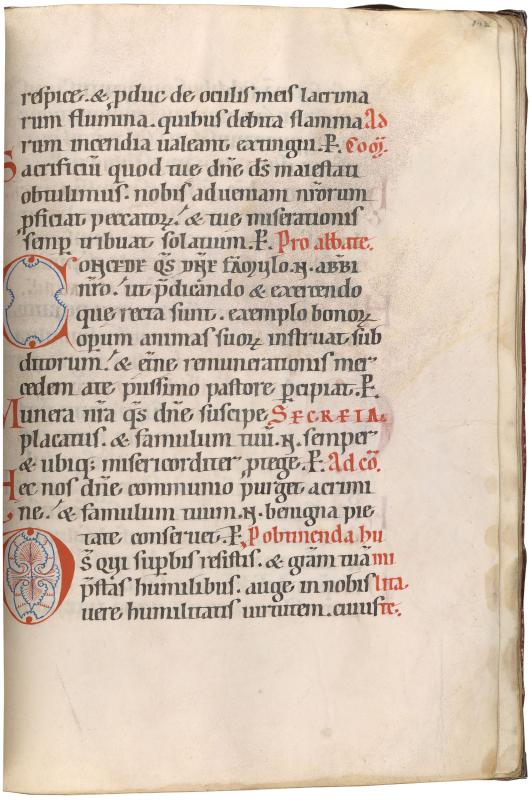 142
respice. & ꝓduc de oculis meis lacrima
rum flumina. quibus debita flamma Ad
rum incendia ualeant extingui. P. Coɱ.
Sacrificiū quod tue dn̄e ds̄ maiestati
obtulimus. nobis ad ueniam nr̄orum
ꝓficiat peccatoꝝ. & tue miserationis
semꝑ tribuat solatium. P. Pro abbate.
Concede qs̄ dn̄e famulo. N. abbi
nr̄o. ut p̄dicando & exercendo
que recta sunt. exemplo bonoꝝ
operum animas suoꝝ instruat sub
ditorum. & et̄ne remunerationis mer
cedem a te piissimo pastore ꝑcipiat. P.
Munera nr̄a qs̄ dn̄e suscipe SECRETA
placatus. & famulum tuū. N. semper
& ubiq; misericorditer ꝓtege. P. Ad cō.
Hec nos dn̄e communio purget a crimi
ne. & famulum tuum. N. benigna pie
tate conseruet. P. P obtinenda hu
Ds̄ qui suꝑbis resistis. & gr̄am tuā mi
p̄stas humilibus. auge in nobis lita
uere humilitatis uirtutem. cuius te.